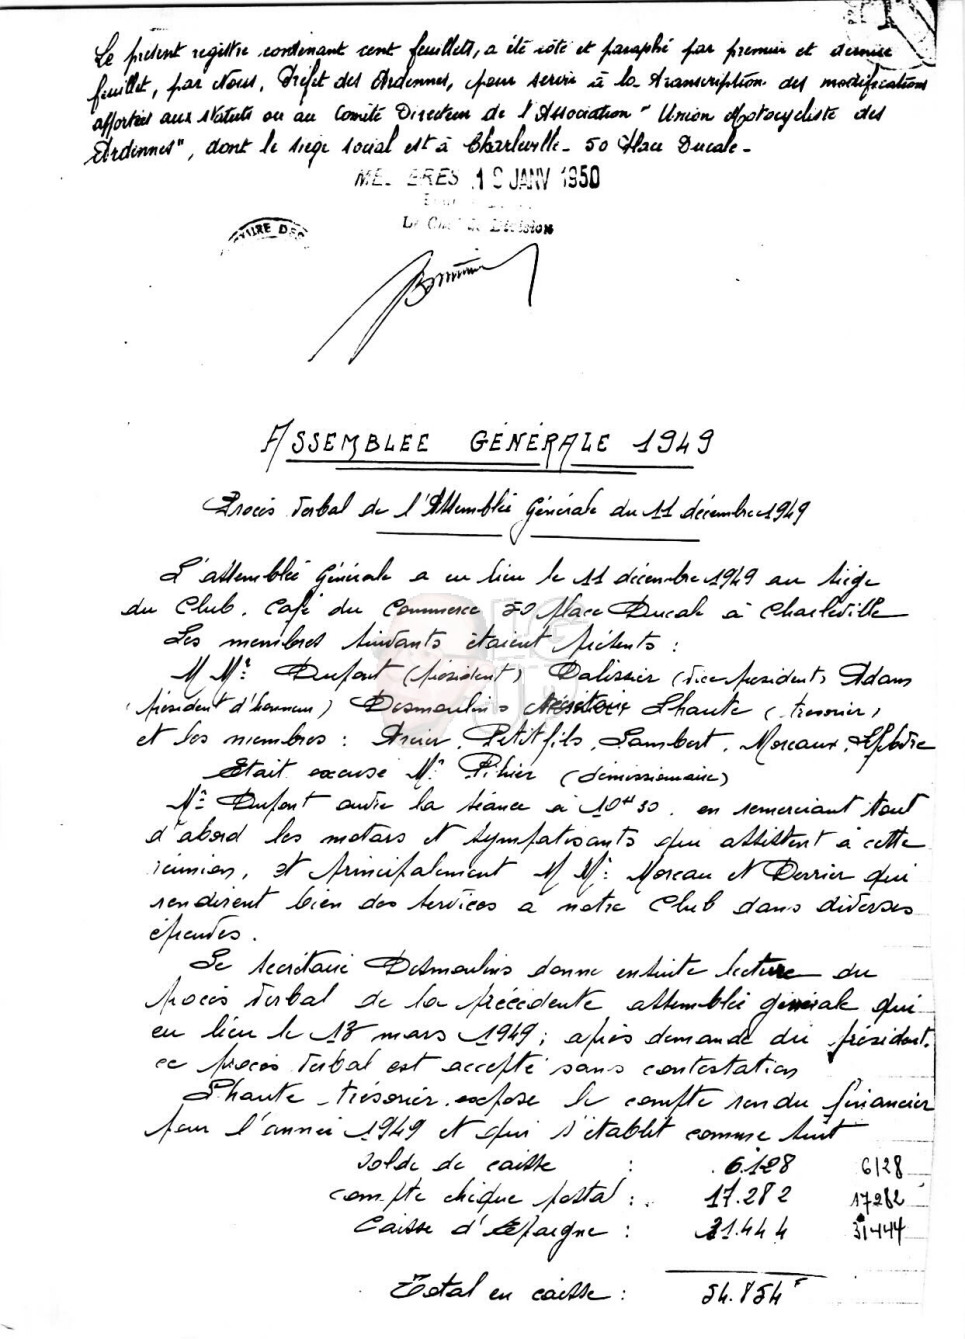 Le présent registre contenant cent feuillets, a été coté et paraphé par premier et dernier
feuillet, par Nous, Préfet des Ardennes, pour servir à la transcription des modifications
apportées aux statuts ou au Comité Directeur de l'Association "Union Motocycliste des
Ardennes", dont le siège social est à Charleville - 50 Place Ducale -
JANV 1950
Le Chef de Division
ASSEMBLÉE GÉNÉRALE 1949
Procès verbal de l'Assemblée Générale du 11 décembre 1949
L'assemblée Générale a eu lieu le 11 décembre 1949 au siège
du Club. Café du Commerce 50 place Ducale à Charleville
Les membres suivants étaient présents :
M Mrs Dupont (président) Dalissier (vice président) Adam
(président d'honneur) Desmoulins Lhaute (trésorier)
et les membres : Petitfils, Lambert, Moreaux,
Etait excusé Mr Pihier (démissionnaire)
Mr Dupont ouvre la séance à 10H30. en remerciant tout
d'abord les motars et sympatisants qui assistent à cette
réunion, et principalement M Mrs Moreau et Derrier qui
rendirent bien des services a notre Club dans diverses
épreuves.
Le secrétaire Desmoulins donne ensuite lecture du
procès verbal de la précédente assemblée générale qui
eu lieu le mars 1949; après demande du président,
ce procès verbal est accepté sans contestation
Lhaute trésorier expose le compte rendu financier
pour l'année 1949 et qui s'établit comme suit
Solde de caisse : 6.128 6128
compte chèque postal : 17.282 17282
Caisse d'Epargne : 31.444 31444
Total en caisse : 54.854 F